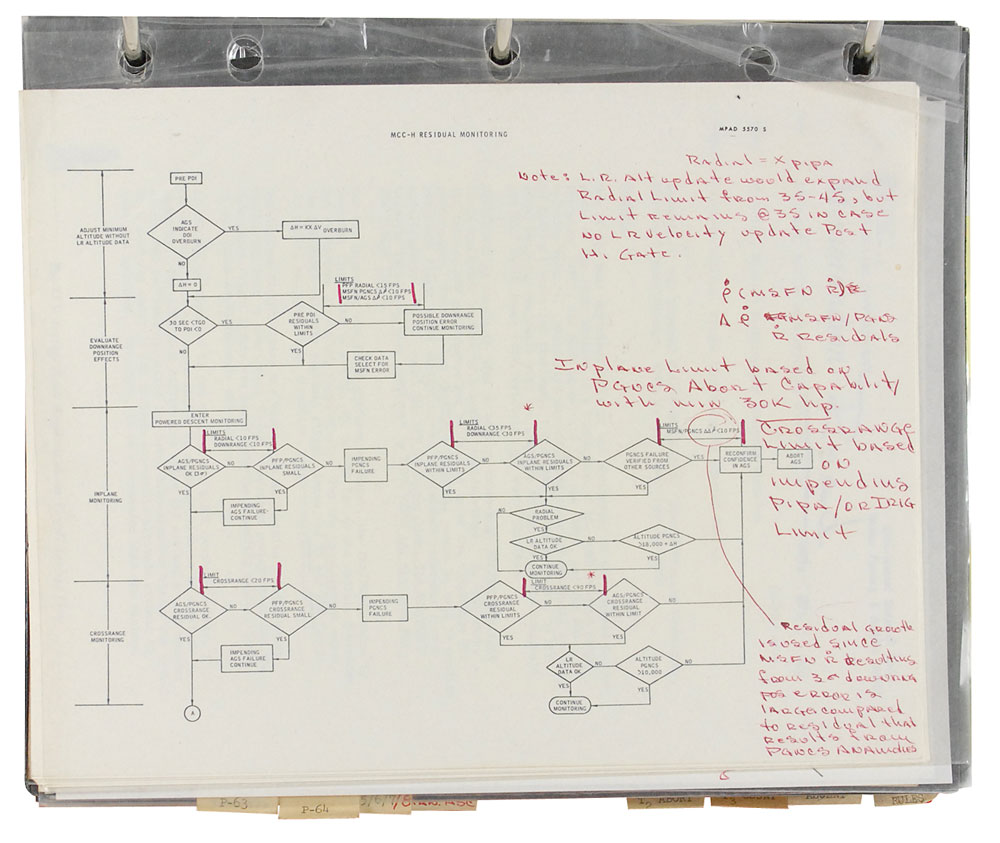 MCC-H RESIDUAL MONITORING
MPAD 3570 S
Radial = X pipa
Note: L.R. Alt update would expand
Radial Limit from 35-45, but
Limit remains @ 35 in case
no LR Velocity update Post
Hi Gate.
ρ̇ (MSFN Ṙ)
Δ ρ̇ MSFN/PGNS
Ṙ Residuals
Inplane Limit based on
PGNCS Abort Capability
with min 30K hp.
CROSSRANGE
Limit based
on
impending
Pipa/or IRIG
Limit
Residual growth
is used since
MSFN Ṙ resulting
from 3σ downrng
pos error is
large compared
to residual that
results from
PGNCS Anamolies
ADJUST MINIMUM
ALTITUDE WITHOUT
LR ALTITUDE DATA
PRE PDI
AGS
INDICATE
DOI
OVERBURN
YES
ΔH = KX ΔV OVERBURN
NO
ΔH = 0
EVALUATE
DOWNRANGE
POSITION
EFFECTS
30 SEC <TGO
TO PDI <0
YES
NO
LIMITS
PFP RADIAL <15 FPS
MSFN PGNCS Δρ̇ <10 FPS
MSFN/AGS Δρ̇ <10 FPS
PRE PDI
RESIDUALS
WITHIN
LIMITS
NO
YES
POSSIBLE DOWNRANGE
POSITION ERROR
CONTINUE MONITORING
CHECK DATA
SELECT FOR
MSFN ERROR
INPLANE
MONITORING
ENTER
POWERED DESCENT MONITORING
LIMITS
RADIAL <10 FPS
DOWNRANGE <10 FPS
AGS/PGNCS
INPLANE RESIDUALS
OK (3σ)
NO
YES
PFP/PGNCS
INPLANE RESIDUALS
SMALL
NO
YES
IMPENDING
AGS FAILURE-
CONTINUE
IMPENDING
PGNCS
FAILURE
*
LIMITS
RADIAL <35 FPS
DOWNRANGE <30 FPS
PFP/PGNCS
INPLANE RESIDUALS
WITHIN LIMITS
NO
YES
AGS/PGNCS
INPLANE RESIDUALS
WITHIN LIMITS
NO
YES
LIMITS
MSFN/PGNCS ΔΔρ̇ <10 FPS
PGNCS FAILURE
VERIFIED FROM
OTHER SOURCES
YES
NO
RECONFIRM
CONFIDENCE
IN AGS
ABORT
AGS
RADIAL
PROBLEM
NO
YES
LR ALTITUDE
DATA OK
NO
YES
ALTITUDE PGNCS
>18,000 + ΔH
YES
CONTINUE
MONITORING
CROSSRANGE
MONITORING
LIMIT
CROSSRANGE <20 FPS
AGS/PGNCS
CROSSRANGE
RESIDUAL OK.
NO
YES
PFP/PGNCS
CROSSRANGE
RESIDUAL SMALL
NO
YES
IMPENDING
AGS FAILURE
CONTINUE
IMPENDING
PGNCS
FAILURE
LIMIT
CROSSRANGE <90 FPS
*
PFP/PGNCS
CROSSRANGE
RESIDUAL
WITHIN LIMITS
NO
YES
AGS/PGNCS
CROSSRANGE
RESIDUAL WITHIN
LIMIT
NO
YES
LR
ALTITUDE
DATA OK
NO
YES
ALTITUDE
PGNCS
>10,000
NO
YES
CONTINUE
MONITORING
A
P-63
P-64
ABORT
RULES